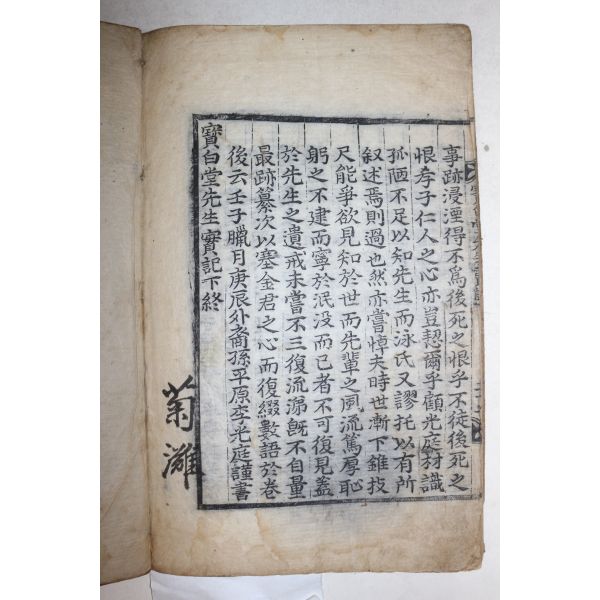 事跡浸湮得不爲後死之恨乎不徒後死之
恨孝子仁人之心亦豈恝爾乎顧光庭材識
孤陋不足以知先生而泳氏又謬托以有所
叙述焉則過也然亦嘗悼夫時世漸下錐技
尺能爭欲見知於世而先輩之風流篤厚恥
躬之不逮而寧於泯没而已者不可復見蓋
於先生之遺戒未嘗不三復流涕旣不自量
最跡纂次以塞金君之心而復綴數語於卷
後云壬子臘月庚辰外裔孫平原李光庭謹書
寶白堂先生實記下終
菊灘